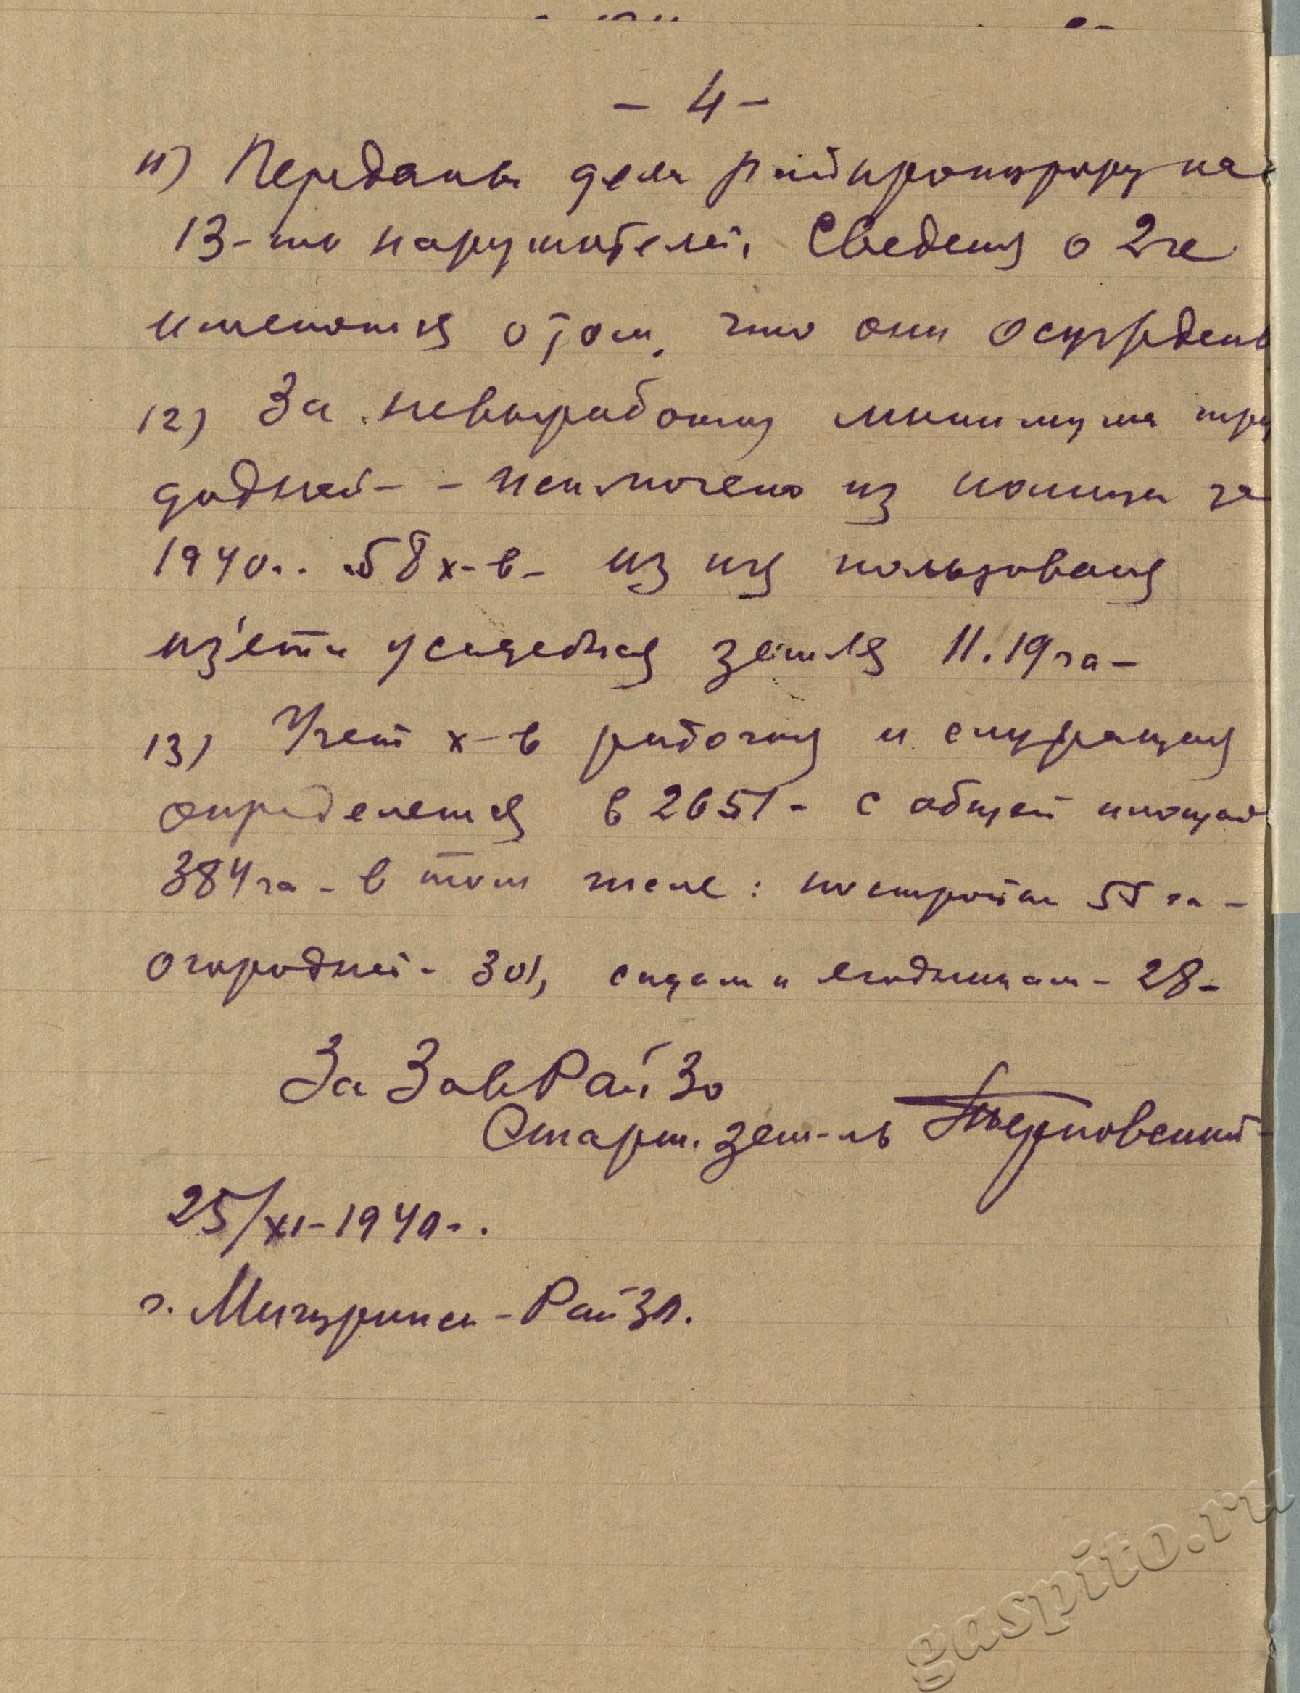 - 4 -
11) Переданы дела райпрокурору на
13-ть нарушителей. Сведения о 2-х
имеются о том, что они осуждены
12) За невыработку минимума тру
додней - - исключено из колхоза за
1940.. 58 х-в- из их пользования
из'ята усадебная земля 11.19 га-
13) Учет х-в рабочих и служащих
определяется в 2651 - с общей площад
384 га - в том числе: постройки 55 га -
огородней - 301, садам и ягодникам - 28-
За Зав РайЗо
Старш. зем-ль Терновский
25/XI-1940..
г. Мичуринск - РайЗо.
gaspito.ru